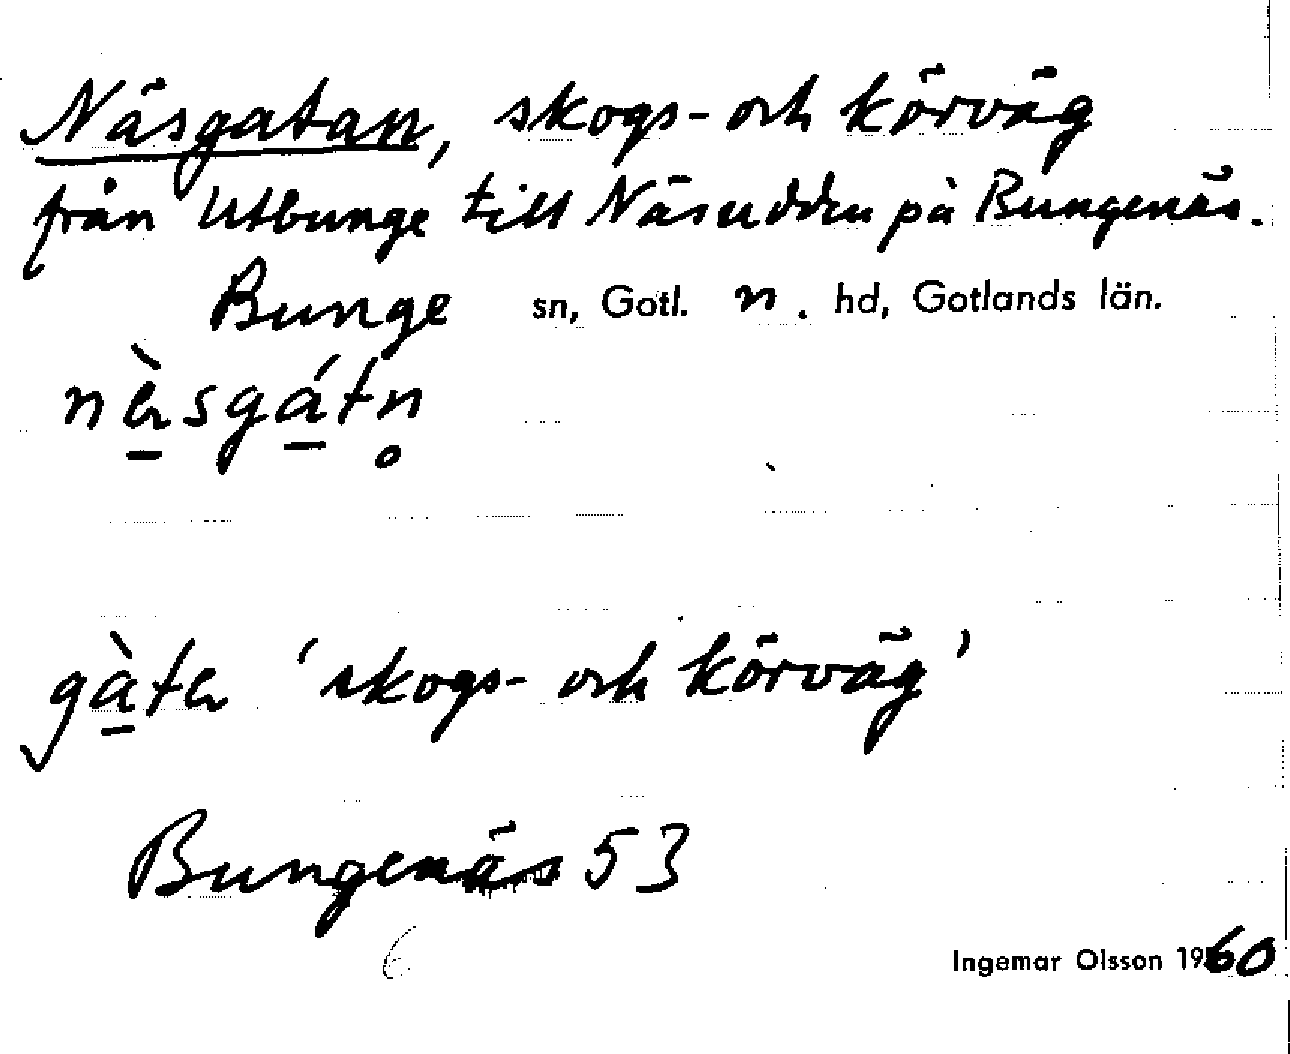 Näsgatan, skogs- och körväg
från Utbunge till Näsudden på Bungenäs.
Bunge sn, Gotl. n. hd, Gotlands län.
næ̠̀sgá̠tn̥
gà̠tæ 'skogs- och körväg'
Bungenäs 53
6
Ingemar Olsson 1960